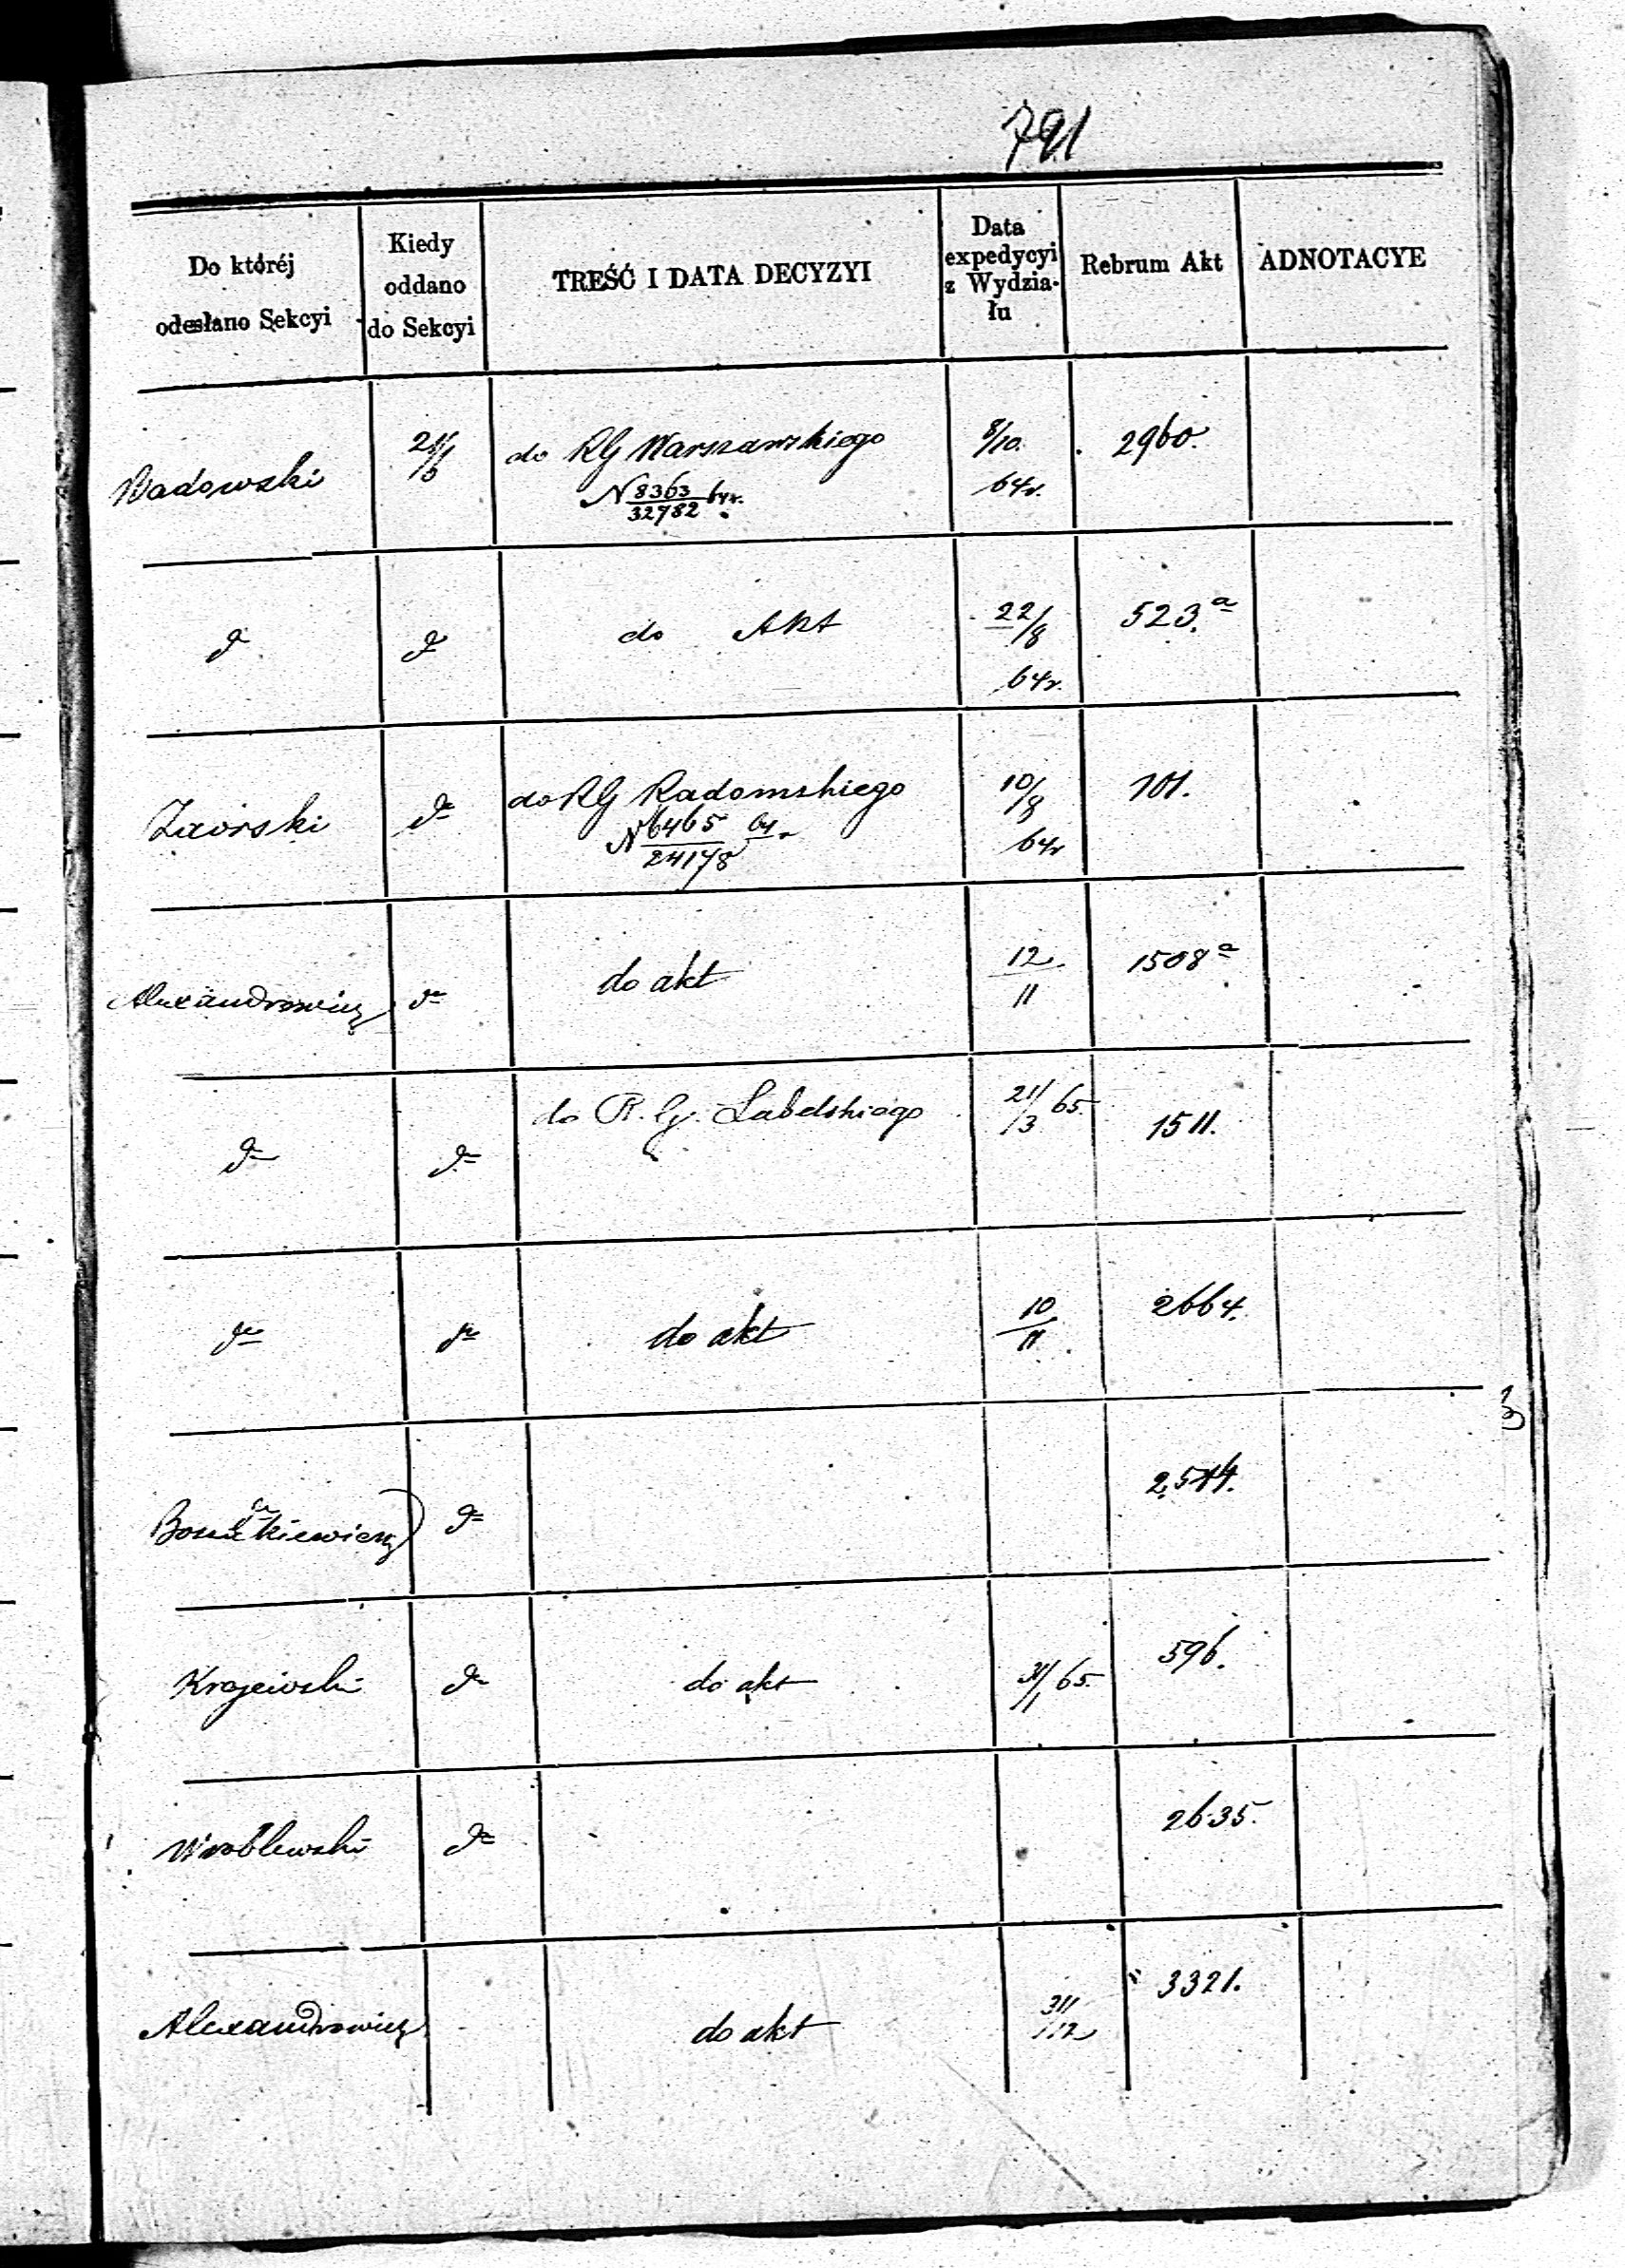 791
Do któréj odesłano Sekcyi
Kiedy oddano do Sekcyi
TREŚĆ I DATA DECYZYI
Data expedycyi z Wydzia-łu
Rebrum Akt
ADNOTACYE
Badowski do RG Warszawskiego 8/10. 2960.
N 8363/32782 64r. 64r.
do do do Akt 22/8 523.a
64r.
Zaorski do do RG Radomskiego 10/8 101.
N 6465/24178 64r 64r
Alexandrowicz do do akt 12/11 1508a
do do do R. G. Lubelskiego 21/3 65. 1511.
do do do akt 10/11 2664.
do
Krajewski do do akt 31/1 65. 596.
Wroblewski do 2635.
Alexandrowicz do akt 31/12 3321.